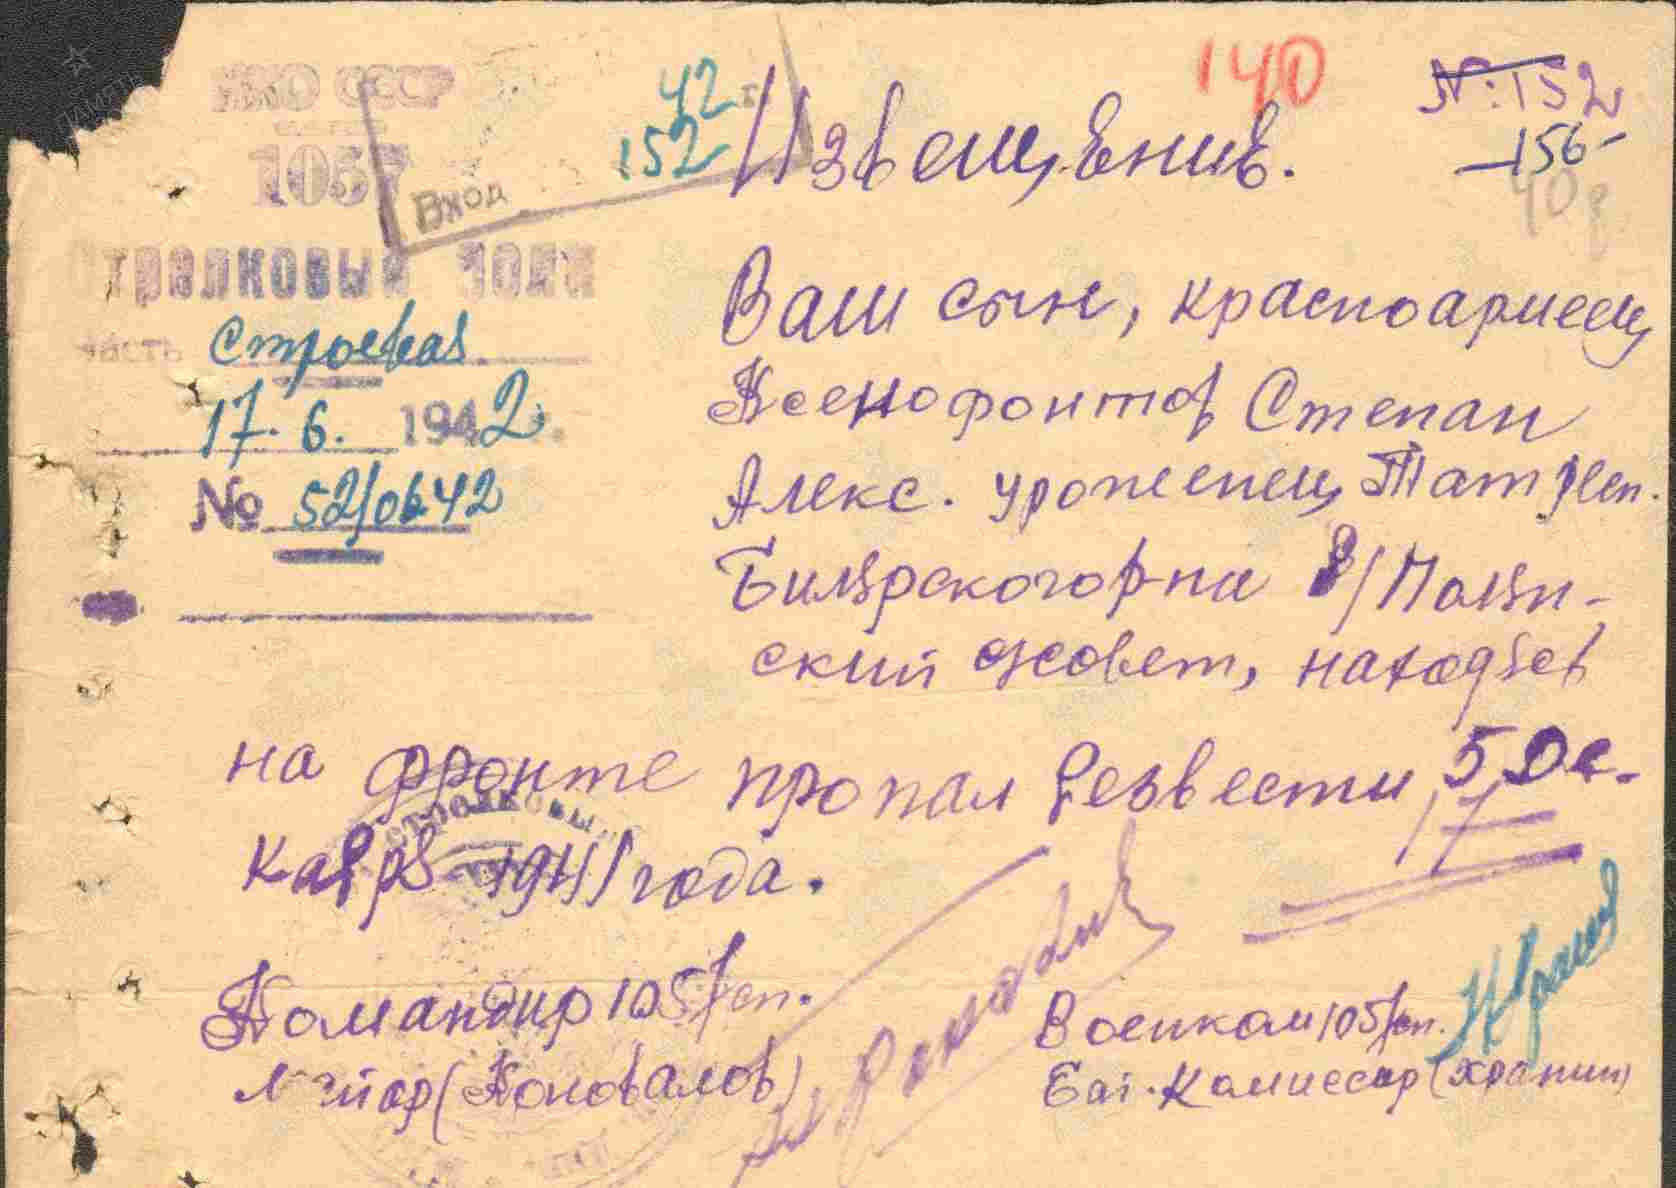 НКО СССР
1057
Стрелковый полк
часть Строевая
17. 6. 1942.
№ 52/0642
Вход
42 г.
152
140
№:152
-156-
Извещение.
Ваш сын, красноармеец
Ксенофонтов Степан
Алекс. уроженец Тат реп.
Билярского р-на
ский с/совет, находясь
на фронте пропал безвести 5 де-
17
кабря 1941 года.
Командир 1057 сп.
майор (Коновалов)
Военком 1057 сп.
Бат. Комиссар (Храпин)